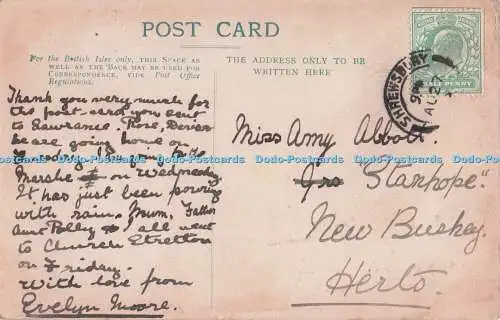 POST CARD
For the British Isles only, this Space as
well as the Back may be used for
Correspondence, vide Post Office
Regulations.
THE ADDRESS ONLY TO BE
WRITTEN HERE
HALF PENNY
SHREWSBURY
AU
Thank you very much for
the post-card you sent
to Lawrance. Rose,
be are going home on
to the
Marshe on Wednesday
It has just been pouring
with rain. Mum, Father
aunt Polly & I all went
to Church Stretton
on Friday.
With love from
Evelyn Moore.
Miss Amy Abbott.
"Stanhope"
New Bushey.
Herts.
Dodo-Postcards Dodo-Postcards Dodo-Postcards Dodo-Postcards Dodo-Postcards Dodo-Postcards